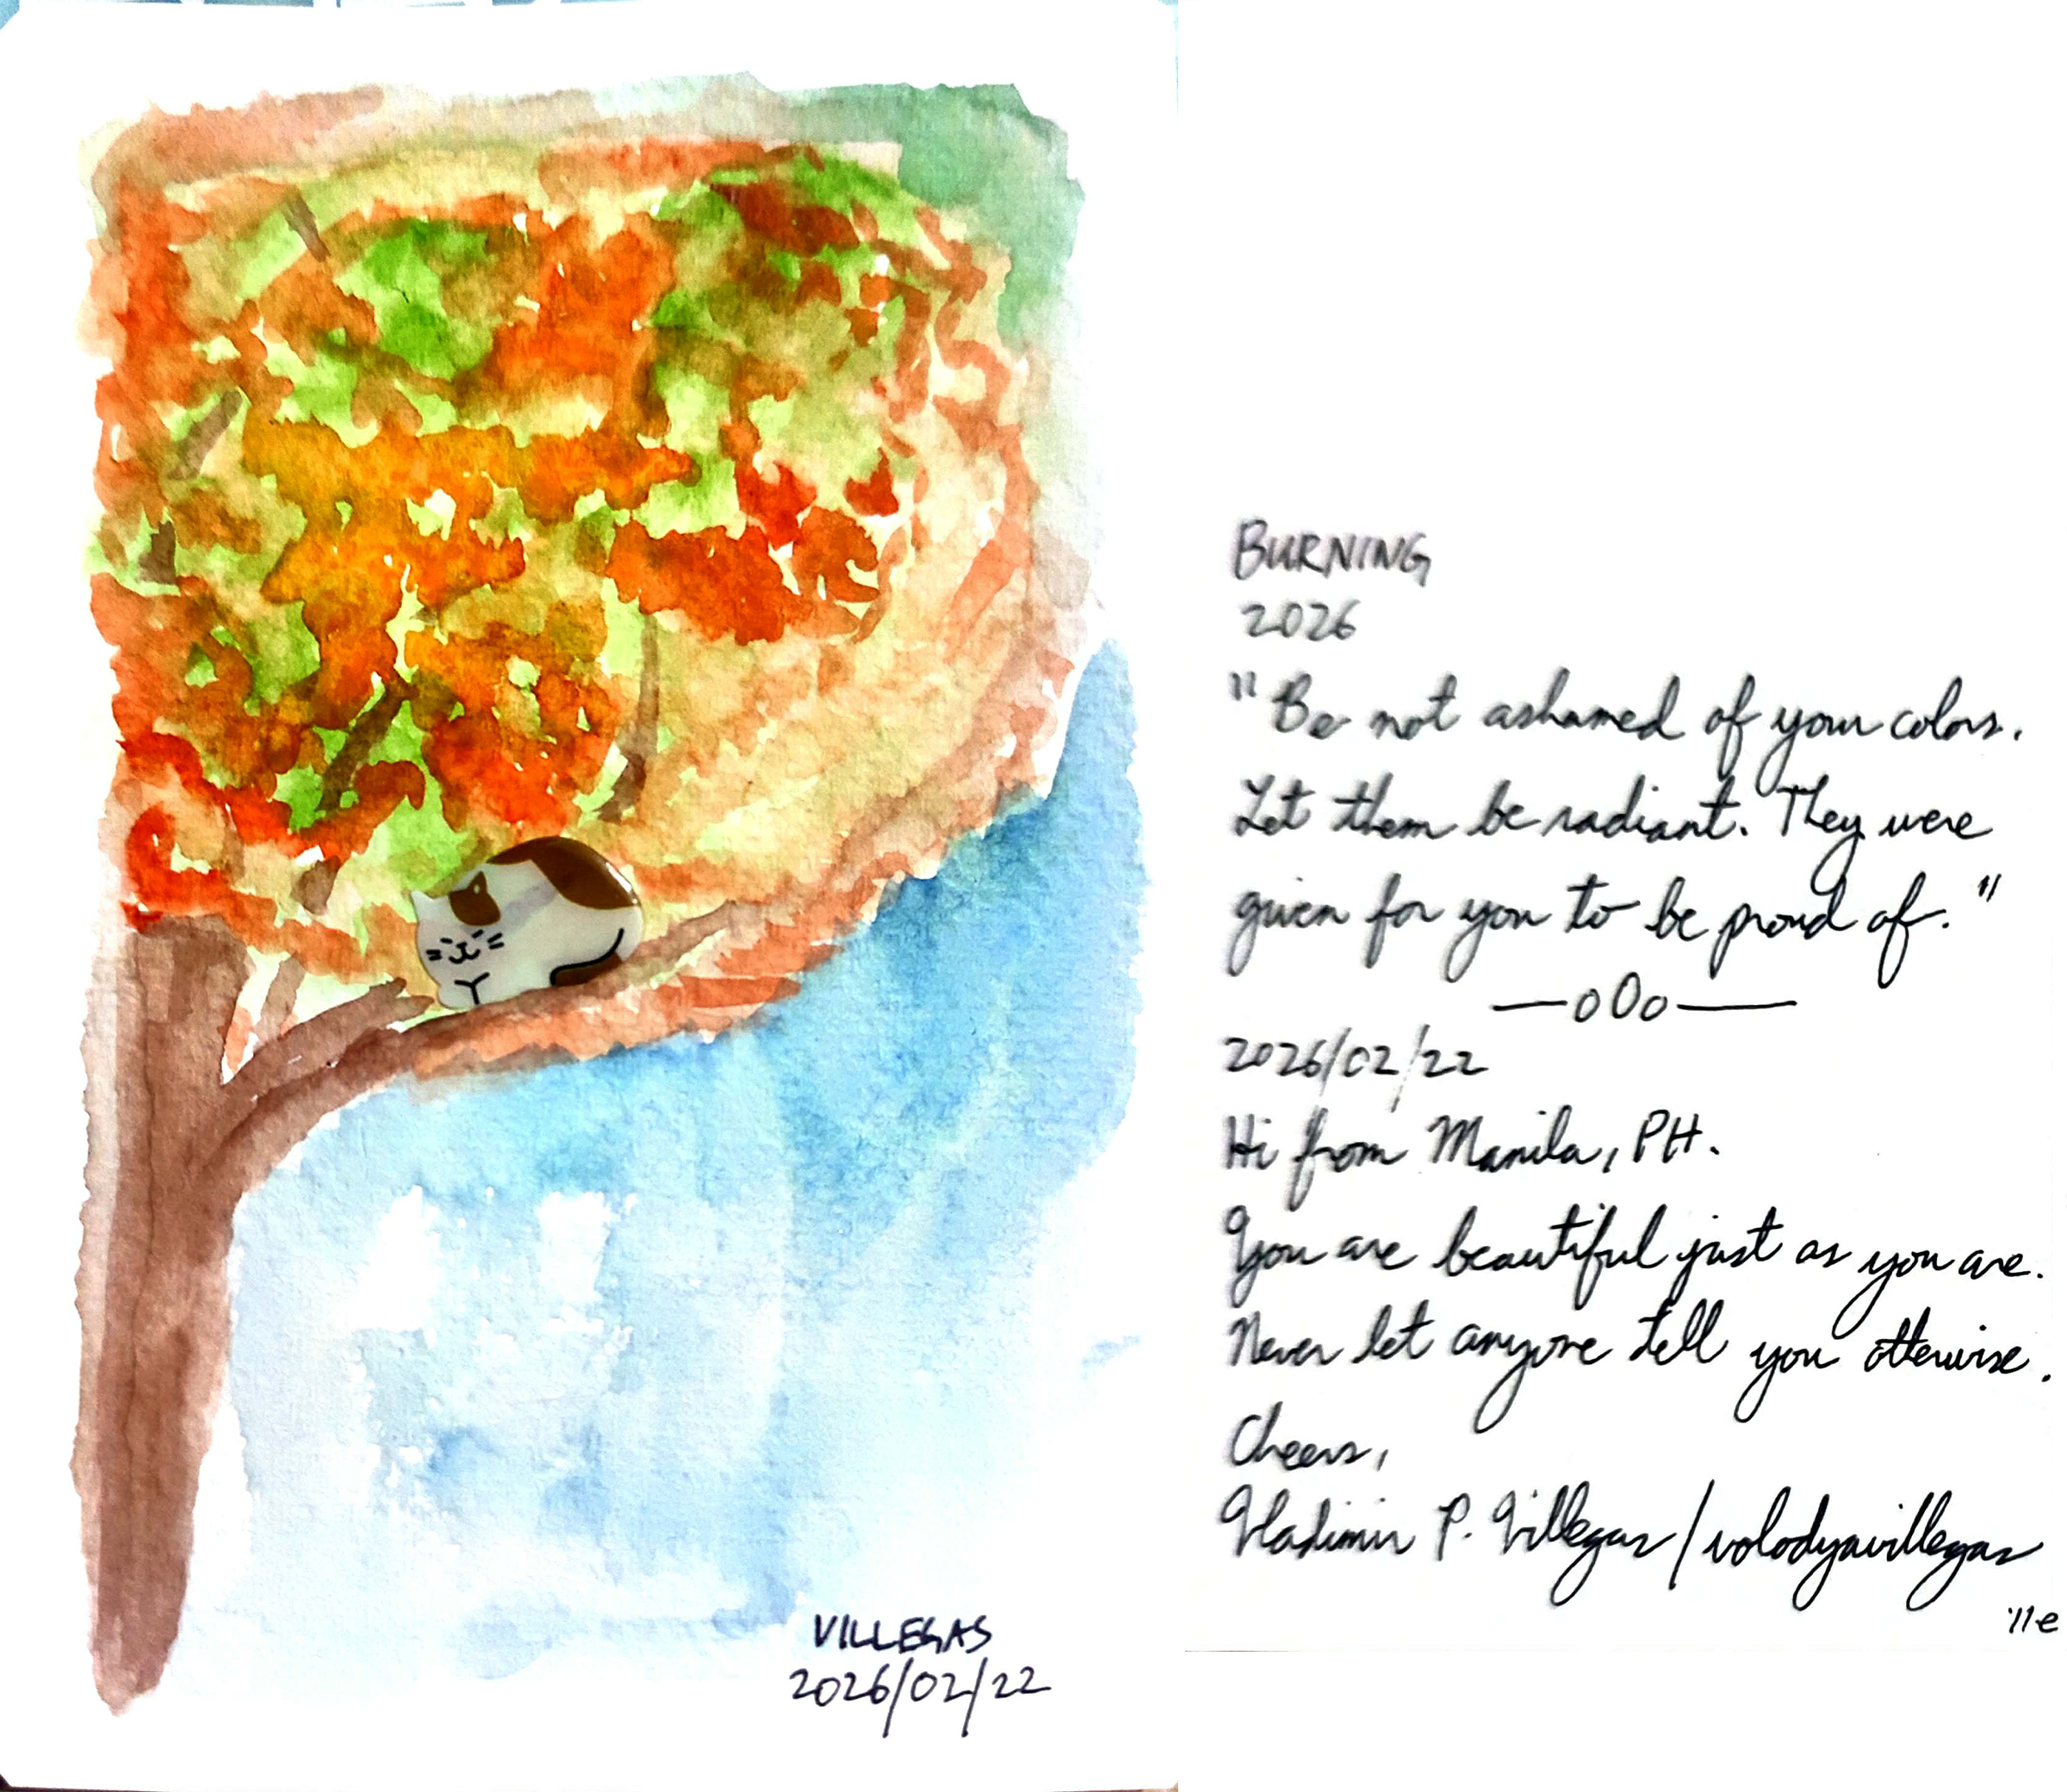 VILLEGAS
2026/02/22
BURNING
2026
"Be not ashamed of your colors.
Let them be radiant. They were
given for you to be proud of."
—oOo—
2026/02/22
Hi from Manila, PH.
You are beautiful just as you are.
Never let anyone tell you otherwise.
Cheers,
Vladimir P. Villegas/volodyavillegas